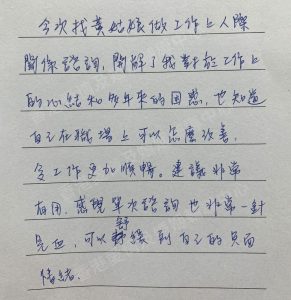 今次找黃姑娘做工作上人際
關係諮詢，開解了我對於工作上
的心結和多年來的困惑，也知道
自己在職場上可以怎麼改善，
令工作更加順暢。建議非常
有用，感覺單次諮詢也非常一針
見血，可以舒緩到自己的負面
情緒。